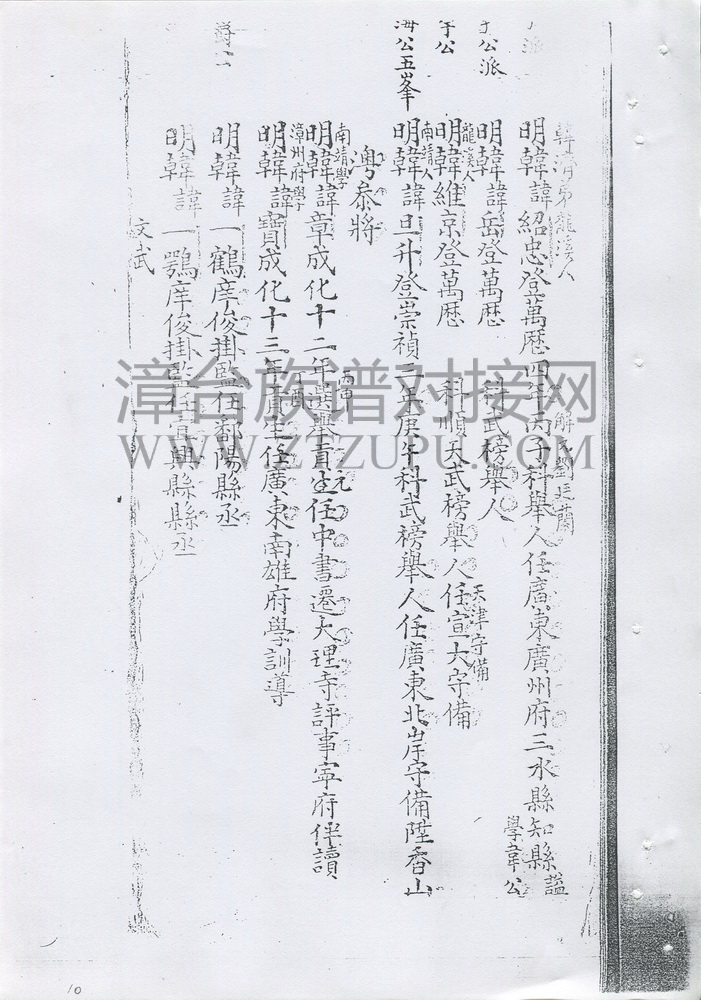 韓濟弟龍溪人
明韓諱紹忠登萬歷四年丙子科舉人任廣東廣州府三水縣知縣謚
解元劉廷蘭
學韋公
公派
明韓諱岳登萬歷 科武榜舉人
龍溪人
公
明韓維京登萬歷 科順天武榜舉人任宣大守備
天津守備
南靖人
海公五峯
明韓諱旦升登崇禎三年庚午科武榜舉人任廣東北岸守備陞香山
澚泰將
南靖學
明韓諱章成化十二年選舉貢生任中書遷大理寺評事寧府伴讀
丙申 元
漳州府學
明韓諱寶成化十三年貢生任廣東南雄府學訓導
丁酉
明韓諱一鶴庠俊掛監任鄱陽縣丞
明韓諱一鶚庠俊掛監任興縣縣丞
文武
漳台族谱对接网
WWW.ZTZUPU.COM
10